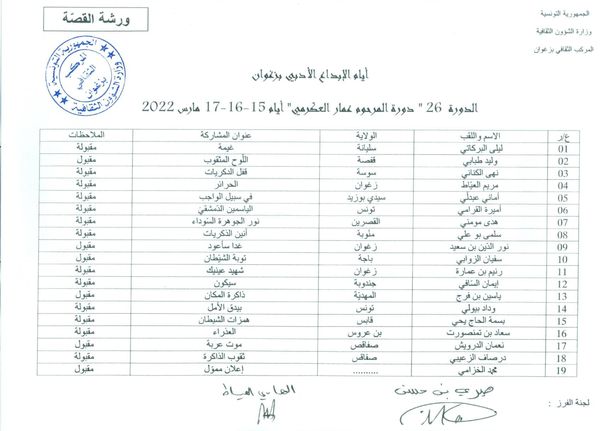 الجمهورية التونسية
وزارة الشؤون الثقافية
المركب الثقافي بزغوان
ورشة القصّة
الجمهورية التونسية
وزارة الشؤون الثقافية
المركب الثقافي بزغوان
أيام الإبداع الأدبي بزغوان
الدورة 26 " دورة المرحوم عمار العكرمي" أيام 15-16-17 مارس 2022
ع/ر الاسم واللقب الولاية عنوان المشاركة الملاحظات
01 ليلى البركاتي سليانة غيمة مقبولة
02 وليد طبابي قفصة اللّوح المثقوب مقبول
03 نهى الكناني سوسة قفل الذكريات مقبولة
04 مريم العيّاط زغوان الحرائر مقبولة
05 أماني عبدلّي سيدي بوزيد في سبيل الواجب مقبولة
06 أميرة القرامي تونس الياسمين الدّمشقيّ مقبولة
07 هدى مومني القصرين نور الجوهرة السّوداء مقبولة
08 سلمى بو علي منوبة أنين الذكريات مقبولة
09 نور الدّين بن سعيد زغوان غدا سأعود مقبول
10 سفيان الزوابي باجة توبة الشيّطان مقبول
11 رنيم بن عمارة زغوان شهيد عينيك مقبولة
12 إيمان السّافي جندوبة سيكون مقبولة
13 ياسين بن فرج المهديّة ذاكرة المكان مقبول
14 وداد بيولي تونس بيدق الأمل مقبولة
15 بسمة الحاج يحي قابس همزات الشيطان مقبولة
16 سعاد بن تمنصورت بن عروس العذراء مقبولة
17 نعمان الدرويش صفاقص موت عربة مقبول
18 درصاف الزعيبي صفاقس ثقوب الذاكرة مقبولة
19 محمد الخزامي .......... إعلان مموّل مقبول
لجنة الفرز :
صبري بن حسن
الهادي العياط